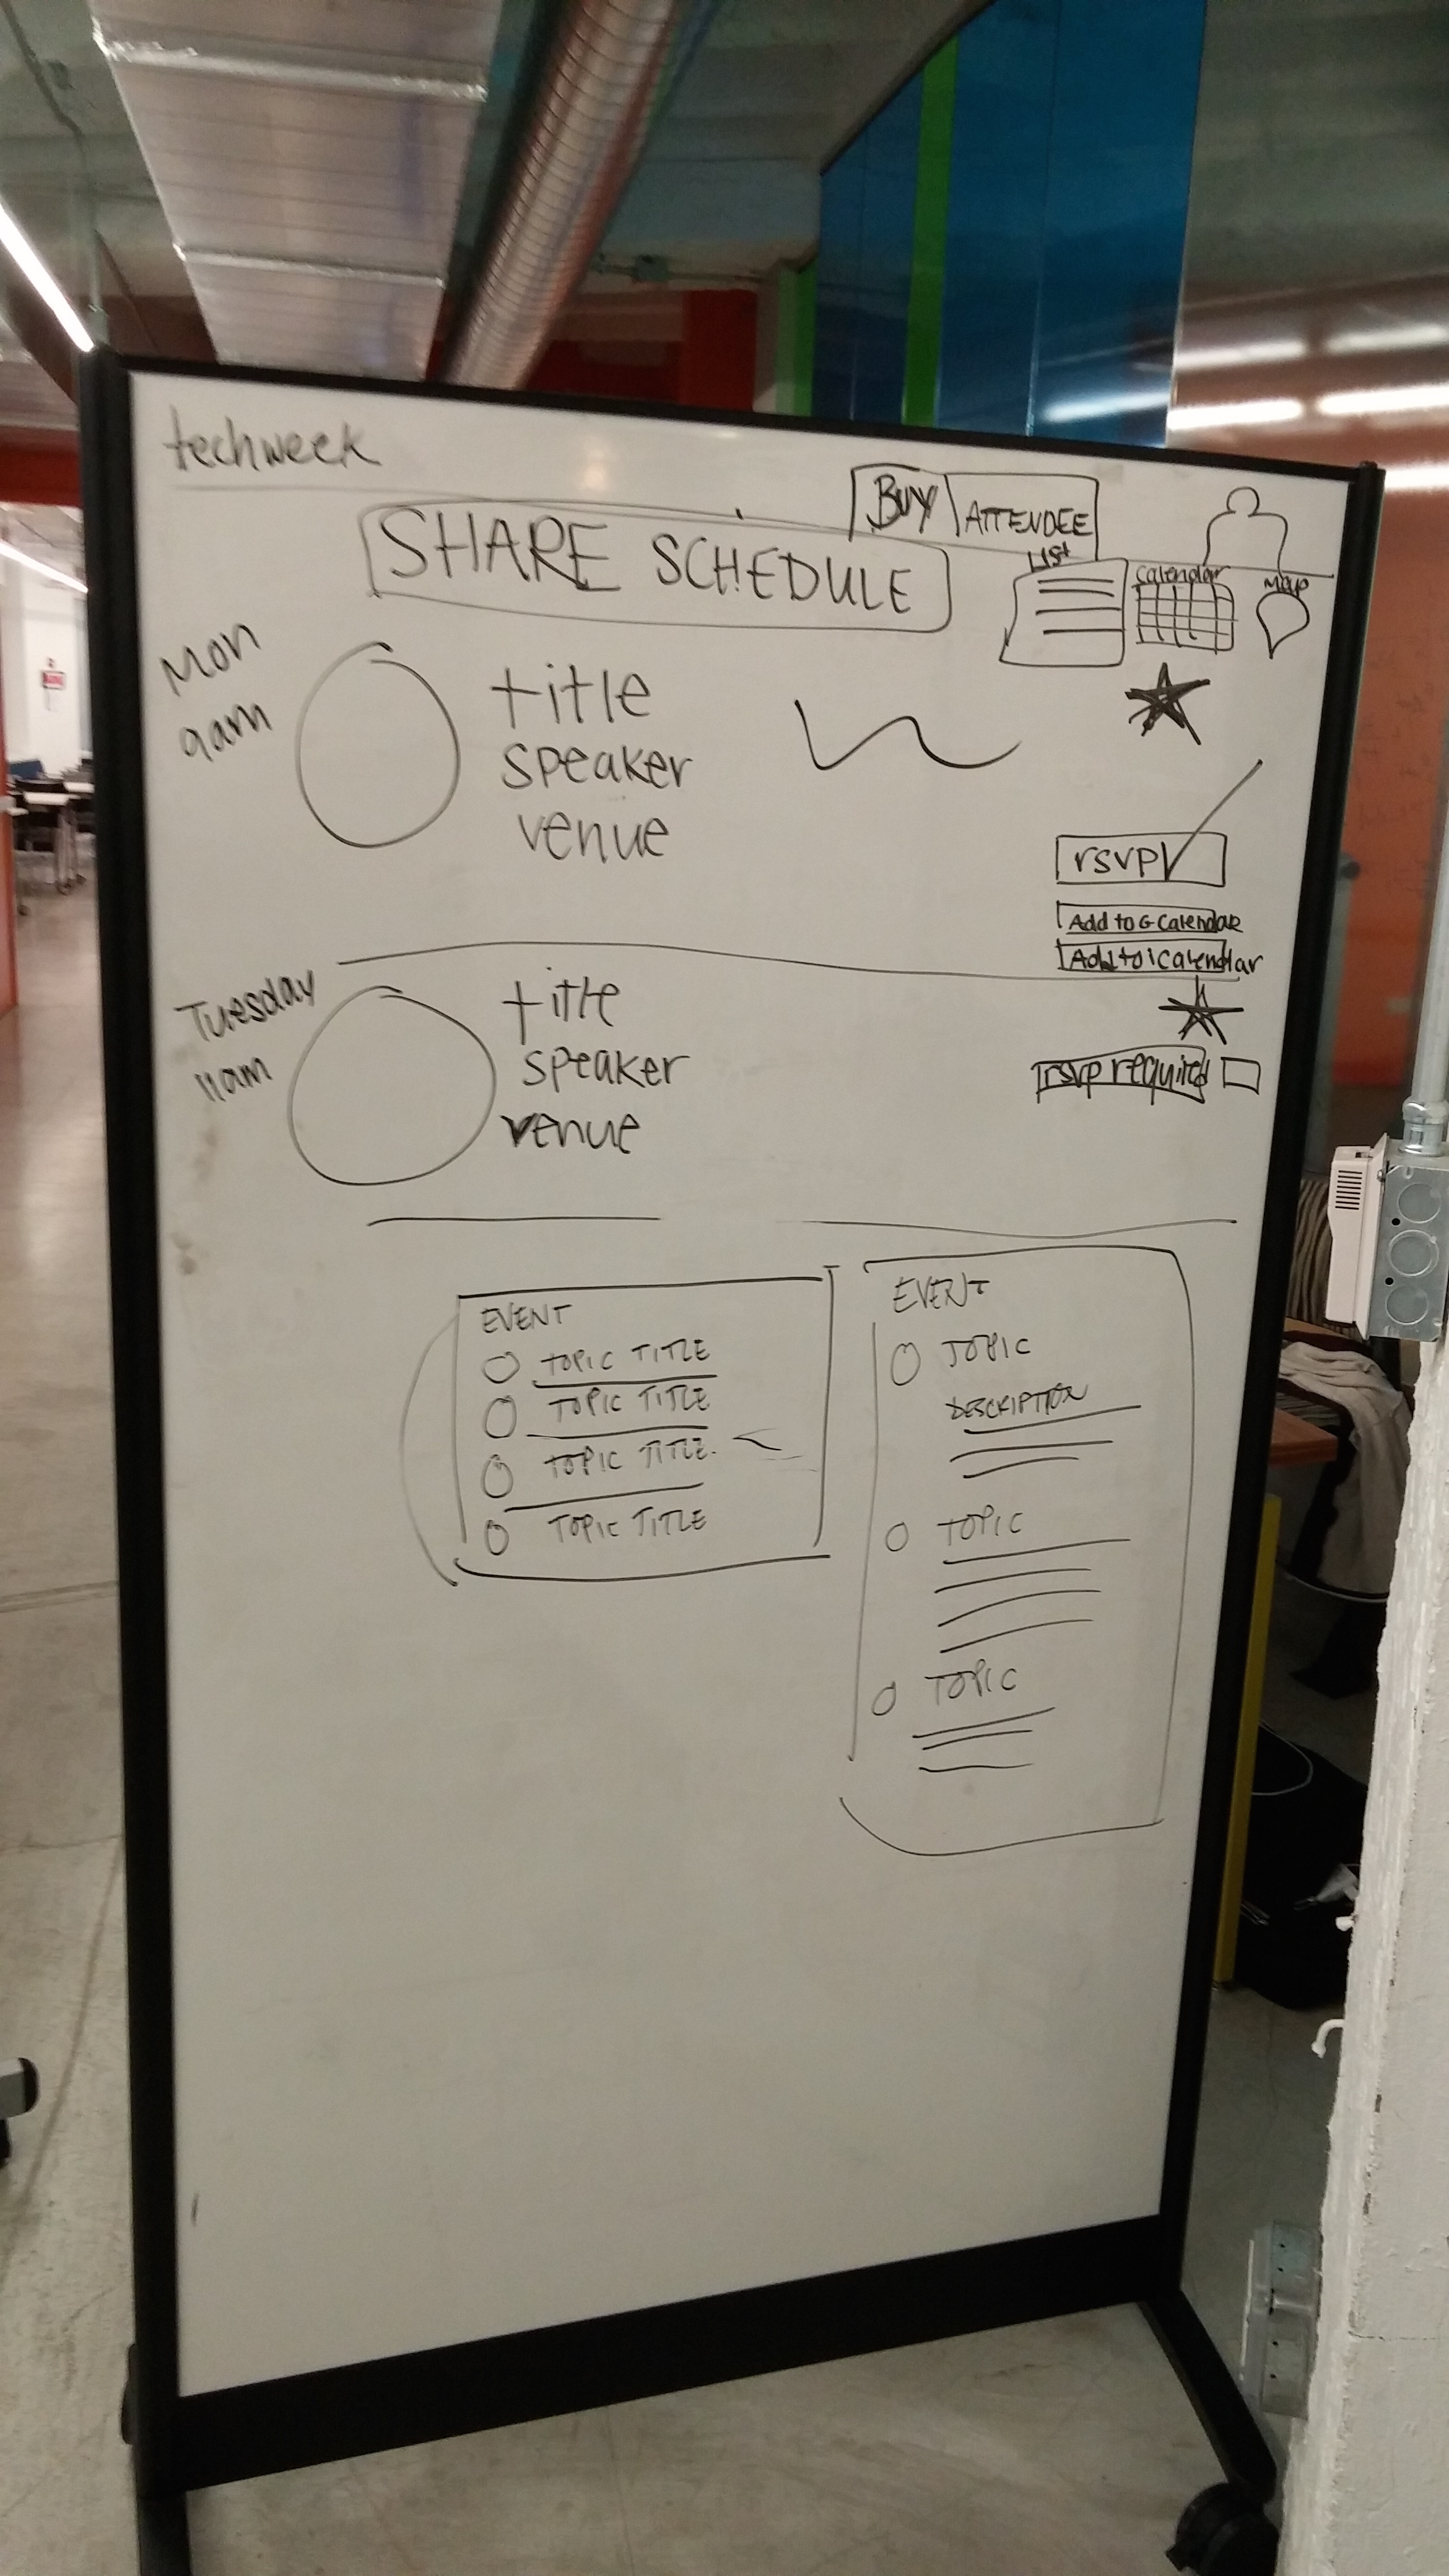 techweek
BUY ATTENDEE
SHARE SCHEDULE
List
Calendar
map
Mon
9am
title
speaker
venue
rsvp
Add to G Calendar
Add to iCalendar
Tuesday
11am
title
speaker
venue
rsvp required
EVENT
TOPIC TITLE
TOPIC TITLE
TOPIC TITLE
TOPIC TITLE
EVENT
TOPIC
DESCRIPTION
TOPIC
TOPIC